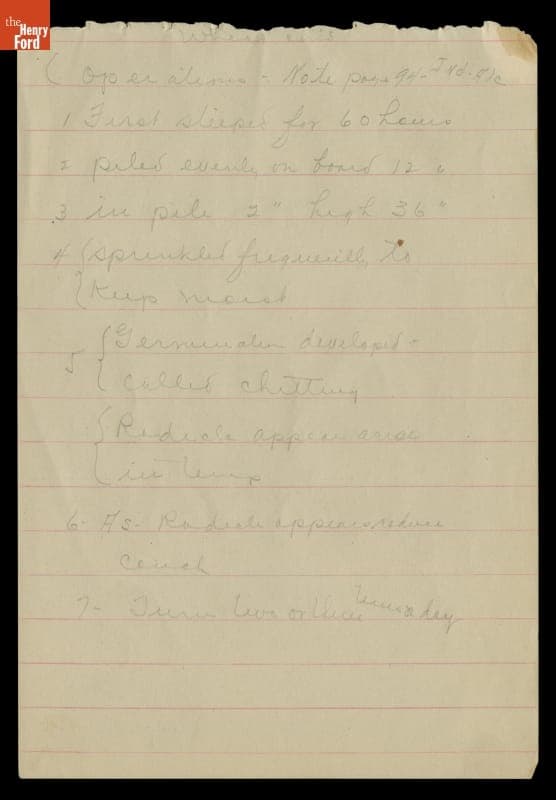 the
Henry
Ford
( Operations - Note page 94-
1 First steeped for 60 hours
2 piled evenly on board 12 "
3 in pile 2" high 36 "
4 { sprinkled frequently to
Keep moist
5 { Germination developed -
called chitting
{ Radicle appearance
in temp
6- As- Radicle appears reduce
couch
7- Turn two or three times a day